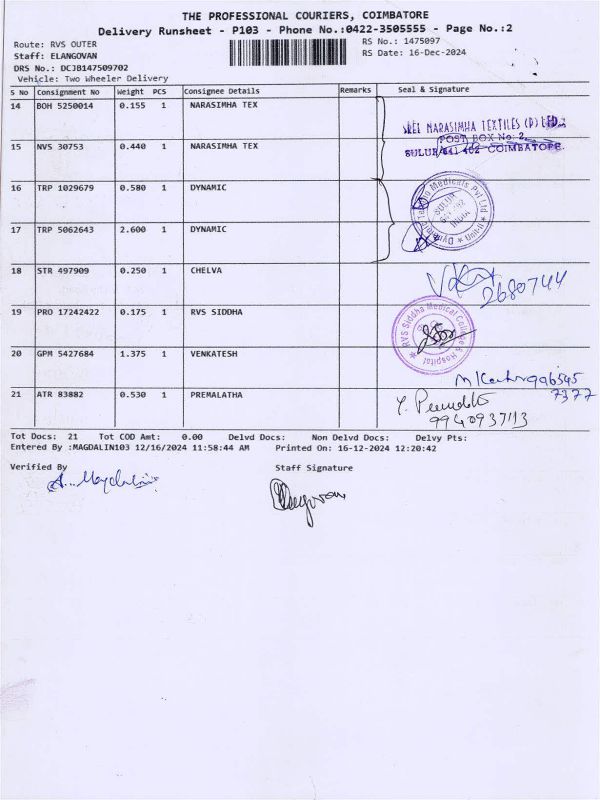 THE PROFESSIONAL COURIERS, COIMBATORE
Delivery Runsheet - P103 - Phone No.:0422-3505555 - Page No.:2
Route: RVS OUTER
Staff: ELANGOVAN
DRS No.: DCJB147509702
Vehicle: Two Wheeler Delivery
RS No.: 1475097
RS Date: 16-Dec-2024
S No Consignment No Weight PCS Consignee Details Remarks Seal & Signature
14 BOH 5250014 0.155 1 NARASIMHA TEX
SREE NARASIMHA TEXTILES (P) LTD.,
POST BOX No: 2,
SULUR 641 402 COIMBATORE.
15 NVS 30753 0.440 1 NARASIMHA TEX
16 TRP 1029679 0.580 1 DYNAMIC
17 TRP 5062643 2.600 1 DYNAMIC
Medicals Pvt Ltd
SULUR
INDIA
18 STR 497909 0.250 1 CHELVA
2680744
19 PRO 17242422 0.175 1 RVS SIDDHA
RVS Siddha Medical College & Hospital
20 GPM 5427684 1.375 1 VENKATESH
21 ATR 83882 0.530 1 PREMALATHA
7377
9940937113
Tot Docs: 21 Tot COD Amt: 0.00 Delvd Docs: Non Delvd Docs: Delvy Pts:
Entered By :MAGDALIN103 12/16/2024 11:58:44 AM Printed On: 16-12-2024 12:20:42
Verified By
Staff Signature